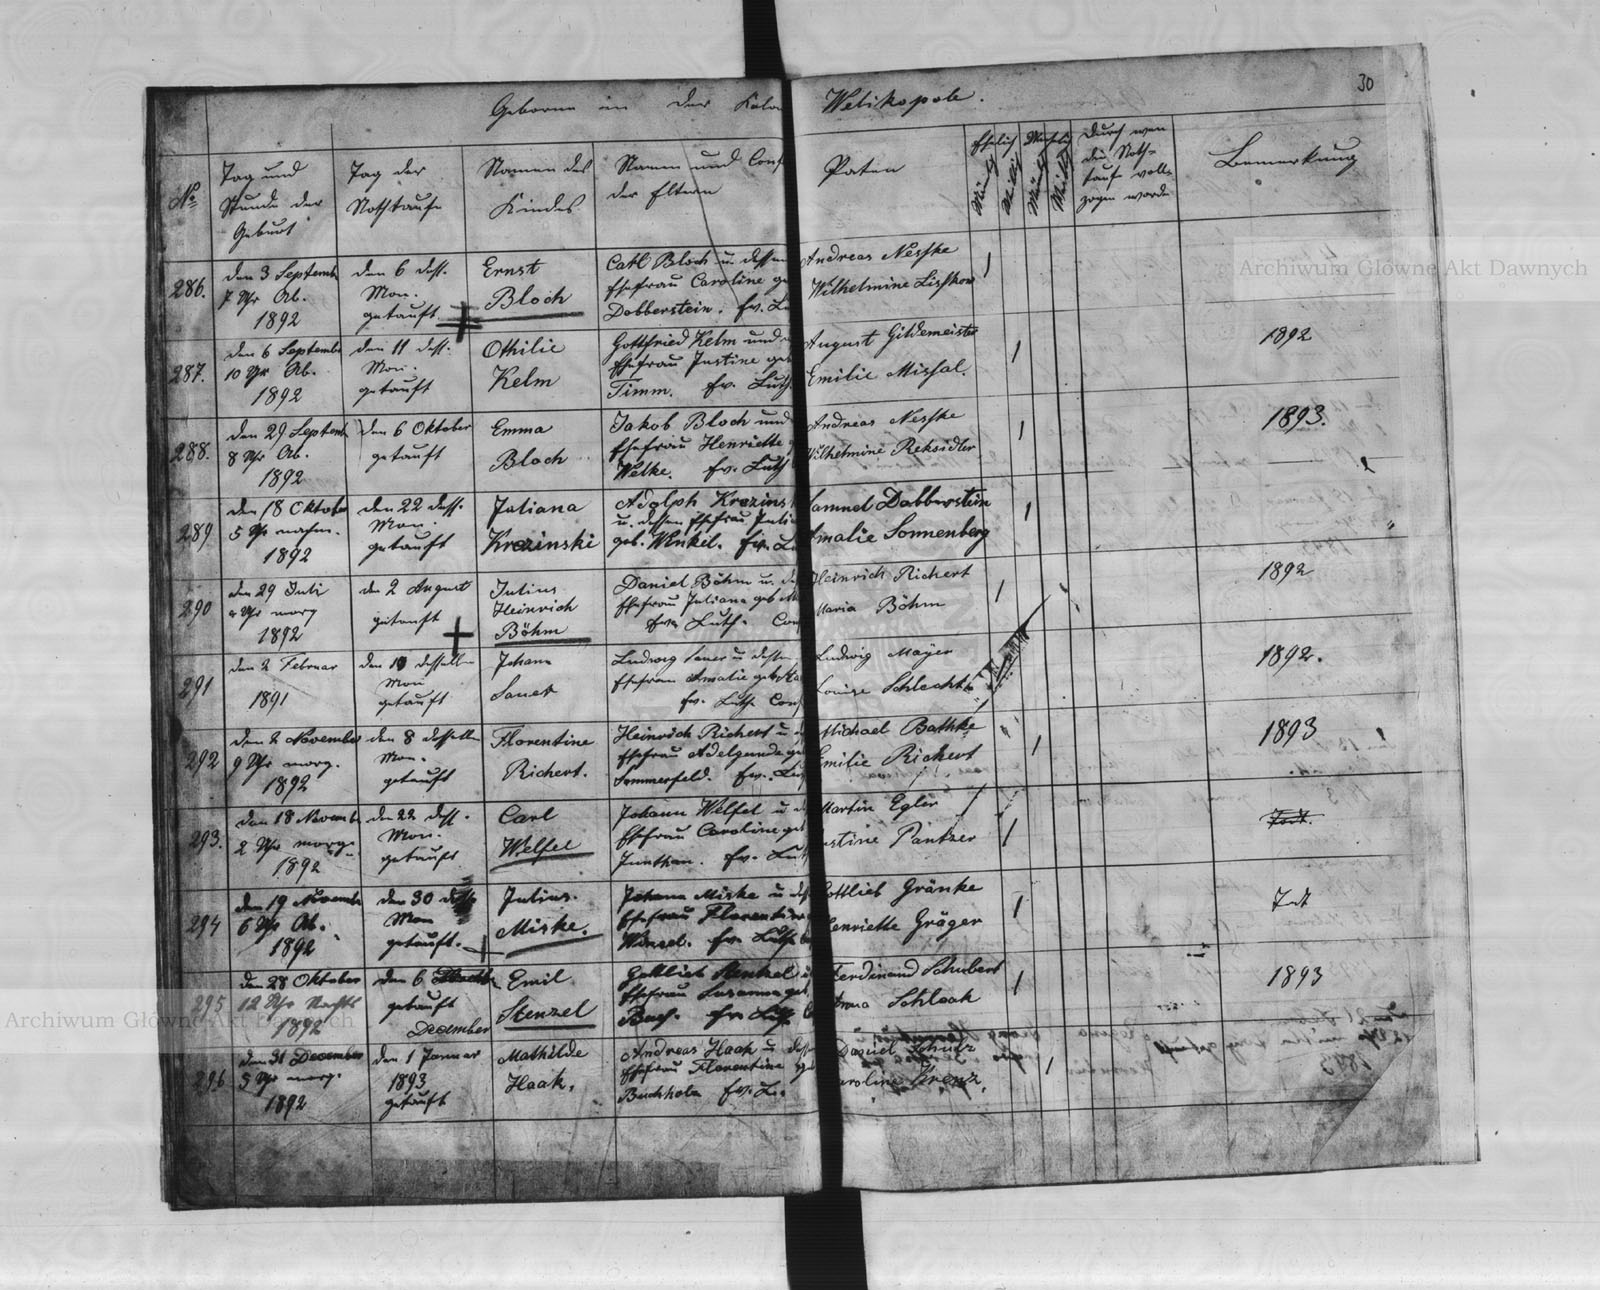 30
Geborne in der Kolo Welikopole.
№
Tag und
Stunde der
Geburt
Tag der
Nothtaufe
Namen des
Kindes
Namen und Conf
der Eltern
Paten
Ehelich
Männl
Weibl
Unehelich
Männl
Weibl
Durch wen
die Noth-
taufe voll-
zogen worde
Bemerkung
286.
den 3 Septemb
7 Uhr Ab.
1892
den 6 dess.
Mon.
getauft
Ernst
Bloch
Carl Bloch u. dessen
Ehefrau Caroline ge
Dobberstein. Ev. Lu
Andreas Neske
Wilhelmine Lisskow
287.
den 6 Septemb
10 Uhr Ab.
1892
den 11 dess.
Mon.
getauft
Othilie
Kelm
Gottfried Kelm und
Ehefrau Justine geb
Timm. Ev. Luth.
August Gildemeister
Emilie Missal.
1892
288.
den 29 Septemb
8 Uhr Ab.
1892
den 6 Oktober
getauft
Emma
Bloch
Jakob Bloch und
Ehefrau Henriette
Welke. Ev. Luth
Andreas Neske
Wilhelmine Reksidler
1893.
289
den 18 Oktober
5 Uhr nachm.
1892
den 22 dess.
Mon.
getauft
Juliana
Krezinski
Adolph Krezins
u. dessen Ehefrau Julia
geb. Winkel. Ev. Lu
Samuel Dobberstein
Amalie Sonnenberg
290
den 29 Juli
Uhr morg
1892
den 2 August
getauft
Julius
Heinrich
Böhm
Daniel Böhm u. de
Ehefrau Juliana geb
Ev. Luth. Con
Heinrich Richert
Maria Böhm
1892
291
den 2 Februar
1891
den 10 desselben
Mon
getauft
Johann
Sauer
Ludwig Sauer u dessen
Ehefrau Amalie geb
Ev. Luth Conf
Ludwig Mayer
Louise Schlecht
1892.
292
den 2 November
9 Uhr morg.
1892
den 8 desselben
Mon.
getauft
Florentine
Richert.
Heinrich Richert u d
Ehefrau Adelgunde ge
Sommerfeld. Ev. Lu
Michael Bathke
Emilie Richert
1893
293.
den 18 Novemb
2 Uhr morg.
1892
den 22 dess.
Mon.
getauft
Carl
Welfel
Johann Welfel u d
Ehefrau Caroline geb
Ev. Luth
Martin Egler
ustine Pantzer
Todt.
294
den 19 Novemb
6 Uhr Ab.
1892
den 30 dess
Mon
getauft.
Julius.
Miske.
Johann Miske u des
Ehefrau Florentine
Wenzel. Ev. Luth
ottlieb Gränke
enriette Gräger
Todt
295
den 28 Oktober
12 Uhr Nachts
1892
den 6
getauft
December
Emil
Stenzel
Gottlieb Stenzel u
Ehefrau Susanna geb
Buch. Ev. Luth
Ferdinand Schubert
Anna Schlaak
1893
296
den 31 December
5 Uhr morg.
1892
den 1 Januar
1893
getauft
Mathilde
Haak.
Andreas Haak u dess
Ehefrau Florentine ge
Buchholz Ev. L.
Daniel Schulz
aroline Krenz.
Archiwum Główne Akt Dawnych
Archiwum Główne Akt Dawnych